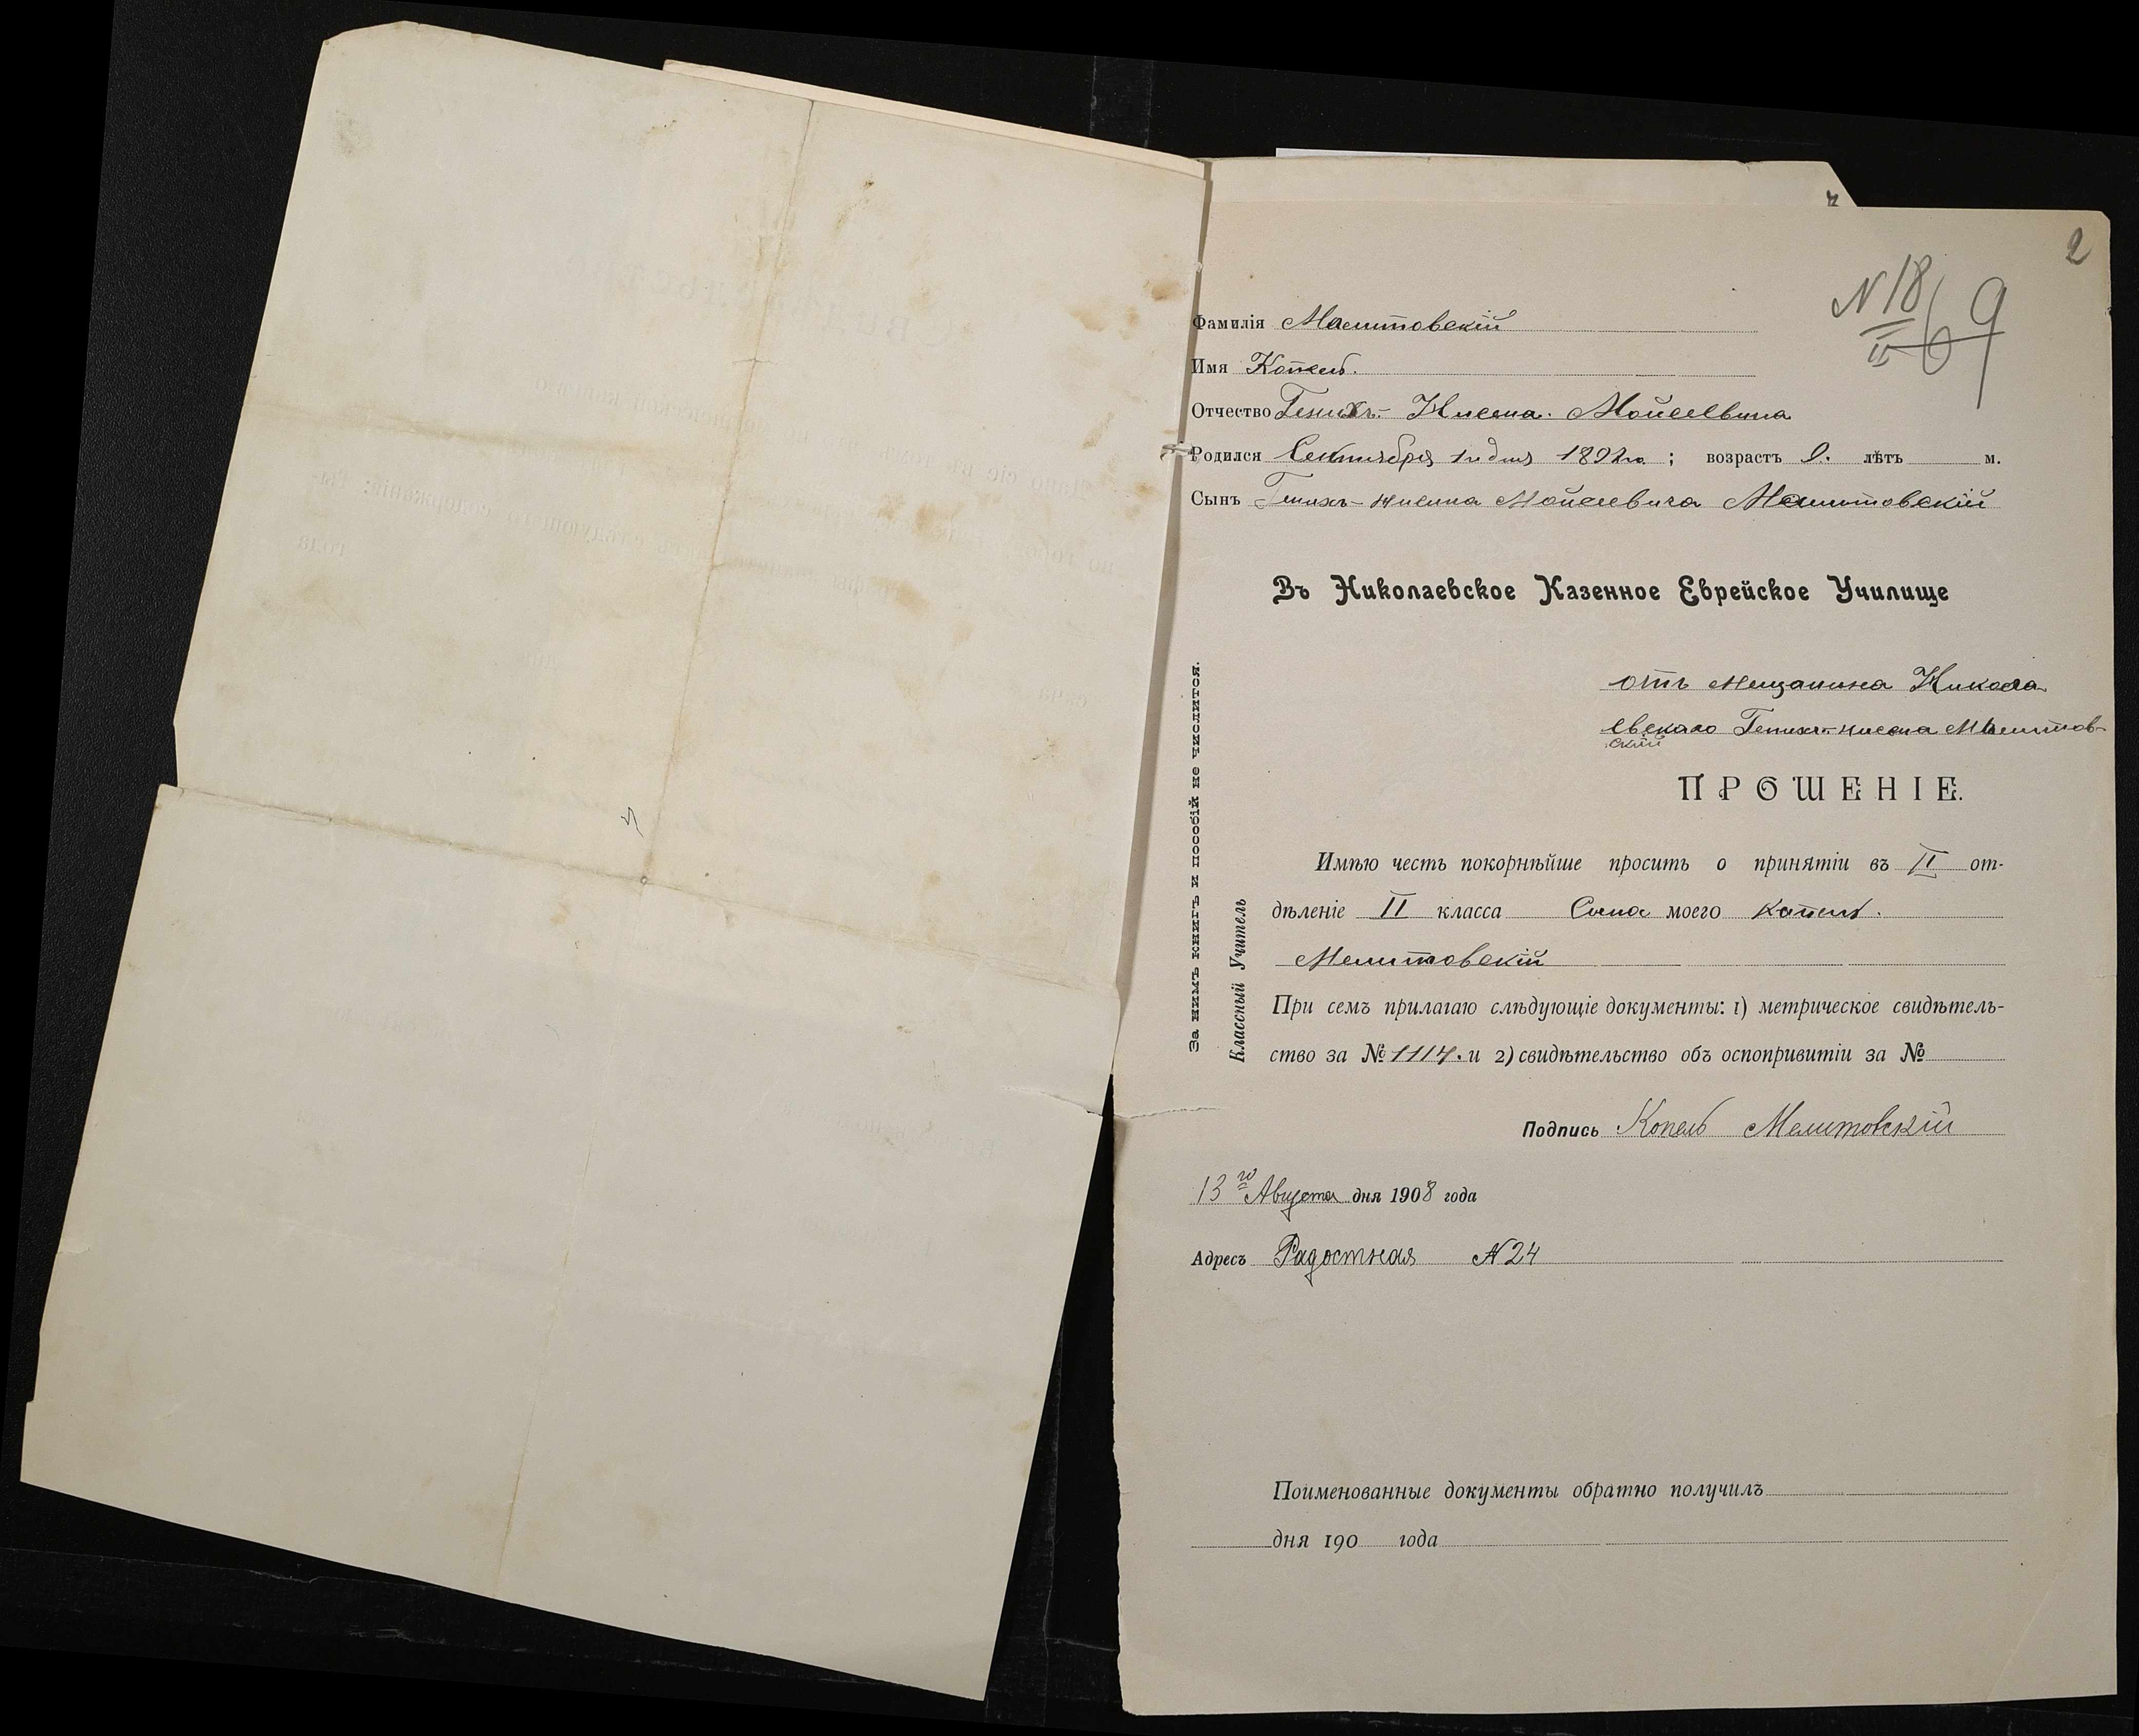 2
N 18
II
6 9
Фамилія Мелитовскій
Имя Копель.
Отчество Генихъ- Нисена. Мойсеевича
Родился Сентября 1го дня 189 ; возрастъ 9. лѣтъ м.
Сынъ Генихъ-Нисена Мойсеевича Мелитовскій
Въ Николаевское Казенное Еврейское Училище
отъ Мещанина Никола-
евскаго Генихъ-Нисена Мелитов-
скій
ПРОШЕНІЕ.
Имѣю честь покорнѣйше просить о принятіи въ II от-
дѣленіе II класса Сына моего Копель.
Мелитовскій
При семъ прилагаю слѣдующіе документы: 1) метрическое свидѣтель-
ство за № 1114. и 2) свидѣтельство объ оспопривитіи за №
Подпись Копель Мелитовскій
13го Августа дня 1908 года
Адресъ Радостная N 24
Поименованные документы обратно получилъ
дня 190 года
За нимъ книгъ и пособій не числится.
Классный Учитель